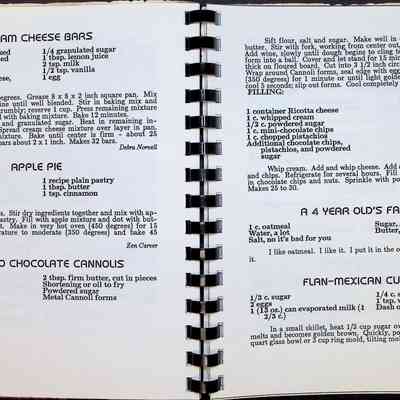 AM CHEESE BARS
1/4 granulated sugar
1 tbsp. lemon juice
2 tsp. milk
1/2 tsp. vanilla
1 egg
egrees. Grease 8 x 8 x 2 inch square pan. Mix
ine until well blended. Stir in baking mix and
rumbly; reserve 1 cup. Press remaining mixture
d with baking mixture. Bake 12 minutes.
and granulated sugar. Beat in remaining in-
Spread cream cheese mixture over layer in pan,
mixture. Bake until center is firm - about 25
bars about 2 x 1 inch. Makes 32 bars.
Debra Norvell
APPLE PIE
1 recipe plain pastry
1 tbsp. butter
1 tsp. cinnamon
s. Stir dry ingredients together and mix with ap-
pastry. Fill with apple mixture and dot with but-
Make in very hot oven (450 degrees) for 15
rature to moderate (350 degrees) and bake 45
Zen Carver
O CHOCOLATE CANNOLIS
2 tbsp. firm butter, cut in pieces
Shortening or oil to fry
Powdered sugar
Metal Cannoli forms
Sift flour, salt and sugar. Make well in
butter. Stir with fork, working from center out,
Add wine, slowly until dough begins to cling to
into a ball. Cover and let stand for 15 min
thick on floured board. Cut into 3 1/2 inch circ
Wrap around Cannoli forms, seal edge with egg
(350 degrees) for 1 minute or until light gold
cool 5 seconds; slip out forms. Cool completely
FILLING:
1 container Ricotta cheese
1 c. whipped cream
1/2 c. powdered sugar
1 c. mini-chocolate chips
1 c. chopped pistachios
Additional chocolate chips,
pistachios, and powdered
sugar
Whip cream. Add and whip cheese. Add
and chips. Refrigerate for several hours. Fill
in chocolate chips and nuts. Sprinkle with po
Makes 25 to 30.
A 4 YEAR OLD'S FA
1 c. oatmeal
Sugar,
Water, a lot
Butter,
Salt, no it's bad for you
I like oatmeal. I like it. I put it in the o
it.
FLAN-MEXICAN CU
1/3 c. sugar
1/4 c.
2 eggs
1 t
1 (13 oz.) can evaporated milk (1
Dash o
2/3 c.)
In a small skillet, heat 1/3 cup sugar ov
melts and becomes golden brown. Quickly, po
quart glass bowl or 3 cup ring mold, tilting mol